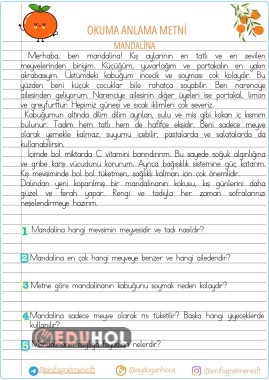 OKUMA ANLAMA METNİ
MANDALİNA
Merhaba, ben mandalina! Kış aylarının en tatlı ve en sevilen
meyvelerinden biriyim. Küçüğüm, yuvarlağım ve portakalın en yakın
akrabasıyım. Üstümdeki kabuğum incecik ve soyması çok kolaydır. Bu
yüzden beni küçük çocuklar bile rahatça soyabilir. Ben narenciye
ailesinden geliyorum. Narenciye ailesinin diğer üyeleri ise portakal, limon
ve greyfurttur. Hepimiz güneşi ve sıcak iklimleri çok severiz.
Kabuğumun altında dilim dilim ayrılan, sulu ve mis gibi kokan iç kısmım
bulunur. Tadım hem tatlı hem de hafifçe ekşidir. Beni sadece meyve
olarak yemekle kalmaz, suyumu içebilir, pastalarda ve salatalarda da
kullanabilirsin.
İçimde bol miktarda C vitamini barındırırım. Bu sayede soğuk algınlığına
ve gribe karşı vücudunu korurum. Ayrıca bağışıklık sistemine güç katarım.
Kış mevsiminde bol bol tüketmen, sağlıklı kalman için çok önemlidir.
Dalından yeni koparılmış bir mandalinanın kokusu, kış günlerini daha
güzel ve ferah yapar. Rengi ve tadıyla her zaman sofralarınızı
neşelendirmeye hazırım.
1 Mandalina hangi mevsimin meyvesidir ve tadı nasıldır?
2 Mandalina en çok hangi meyveye benzer ve hangi ailedendir?
3 Metne göre mandalinanın kabuğunu soymak neden kolaydır?
4 Mandalina sadece meyve olarak mı tüketilir? Başka hangi yiyeceklerde
kullanılır?
EDUHOL
5 nelerdir?
@sinifogretmenicift
@aydoganhoca
@sinifogretmenicift